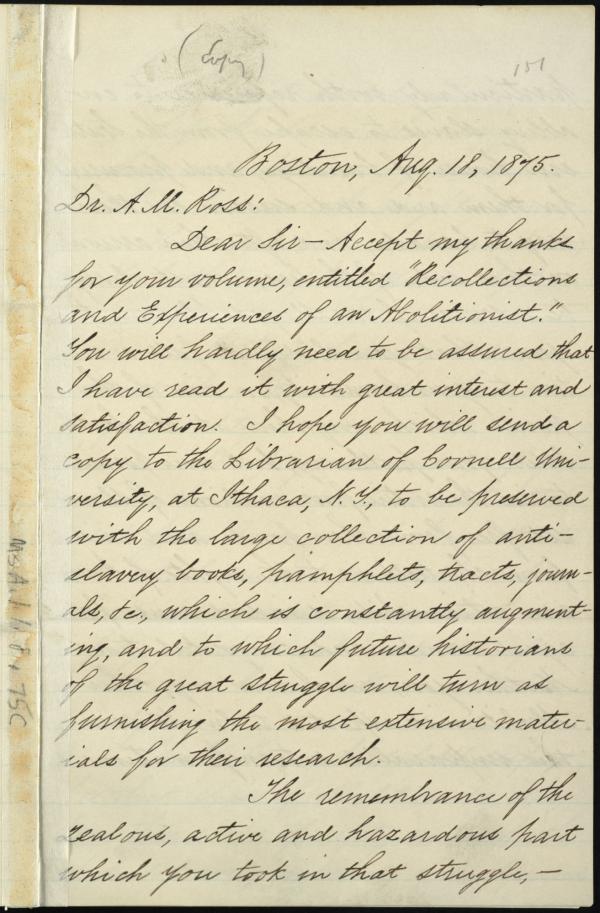 (Copy)
151
Boston, Aug. 18, 1875.
Dr. A. M. Ross:
Dear Sir — Accept my thanks
for your volume, entitled "Recollections
and Experiences of an Abolitionist."
You will hardly need to be assured that
I have read it with great interest and
satisfaction. I hope you will send a
copy to the Librarian of Cornell Uni-
versity, at Ithaca, N.Y., to be preserved
with the large collection of anti-
slavery books, pamphlets, tracts, journ-
als, &c., which is constantly augment-
ing, and to which future historians
of the great struggle will turn as
furnishing the most extensive mater-
ials for their research.
The remembrance of the
zealous, active and hazardous part
which you took in that struggle, —